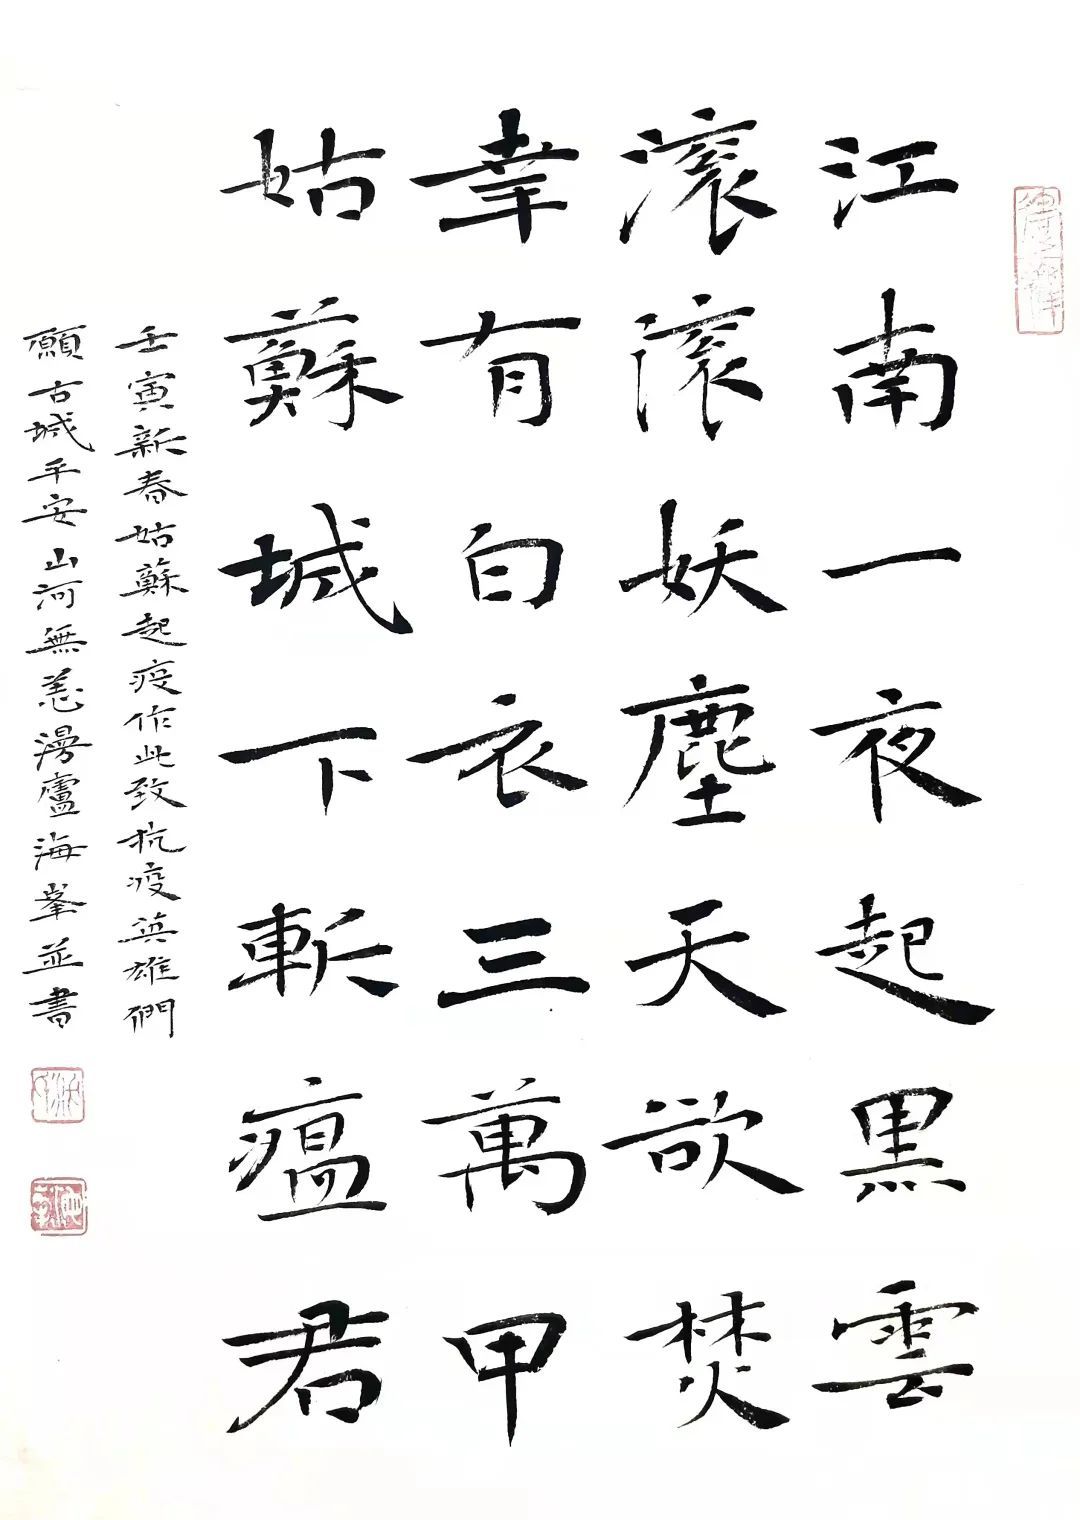 江南一夜起黑雲
滾滾妖塵天欲焚
幸有白衣三萬甲
姑蘇城下斬瘟君
壬寅新春姑蘇起疫作此致抗疫英雄們
願古城平安山河無恙漫廬海峯並書